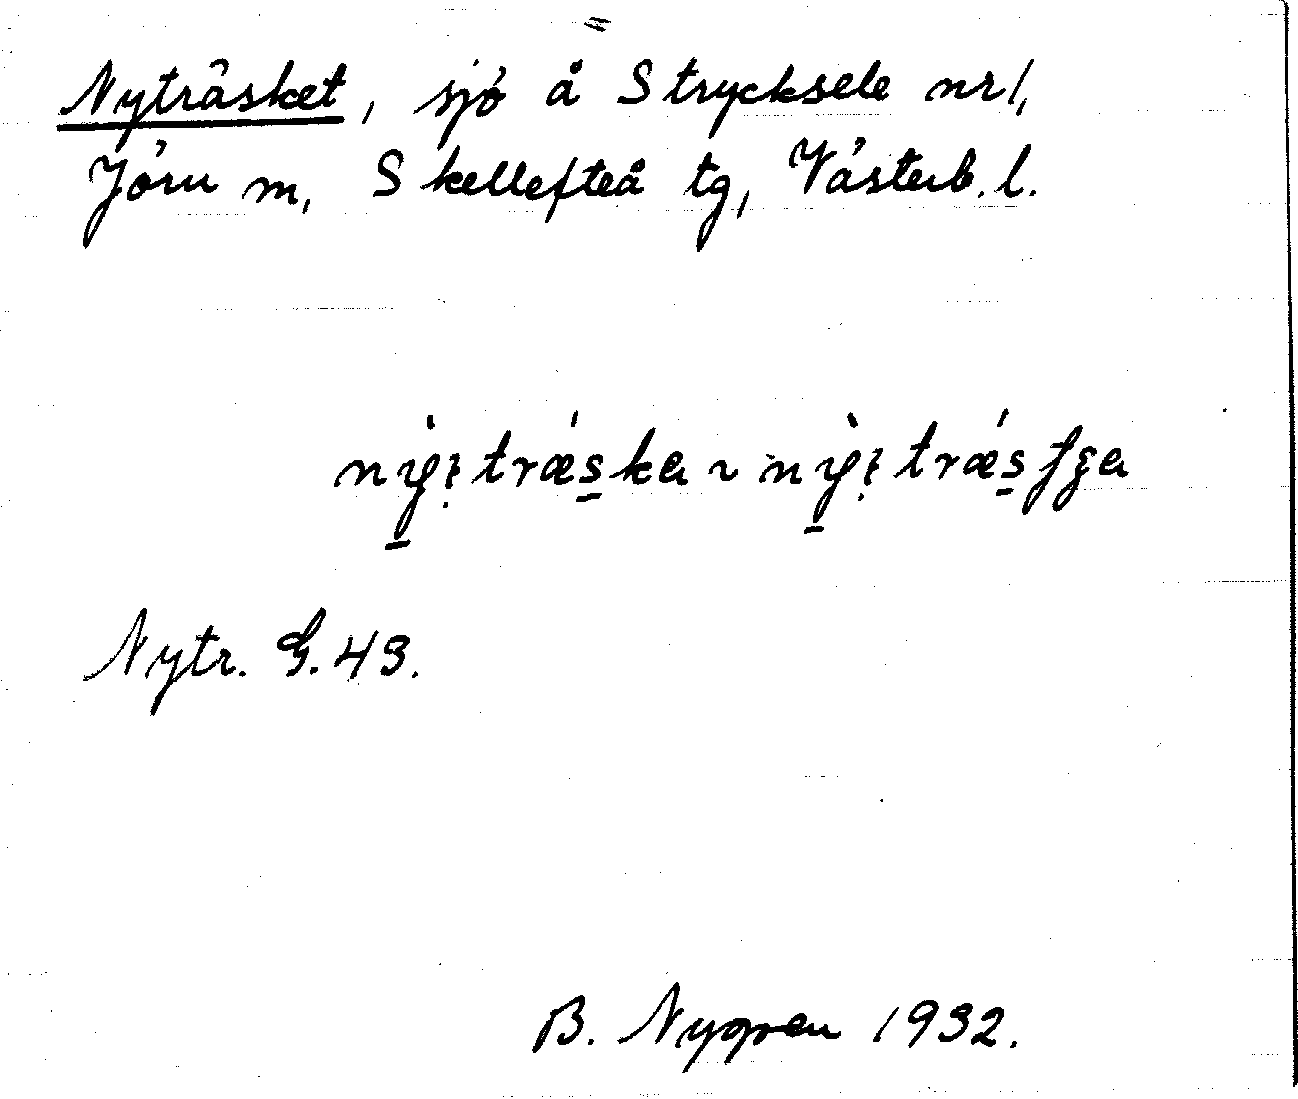 Nyträsket, sjö å Strycksele nr 1,
Jörn m, Skellefteå tg, Västerb. l.
Nytr. G. 43.
B. Nygren 1932.